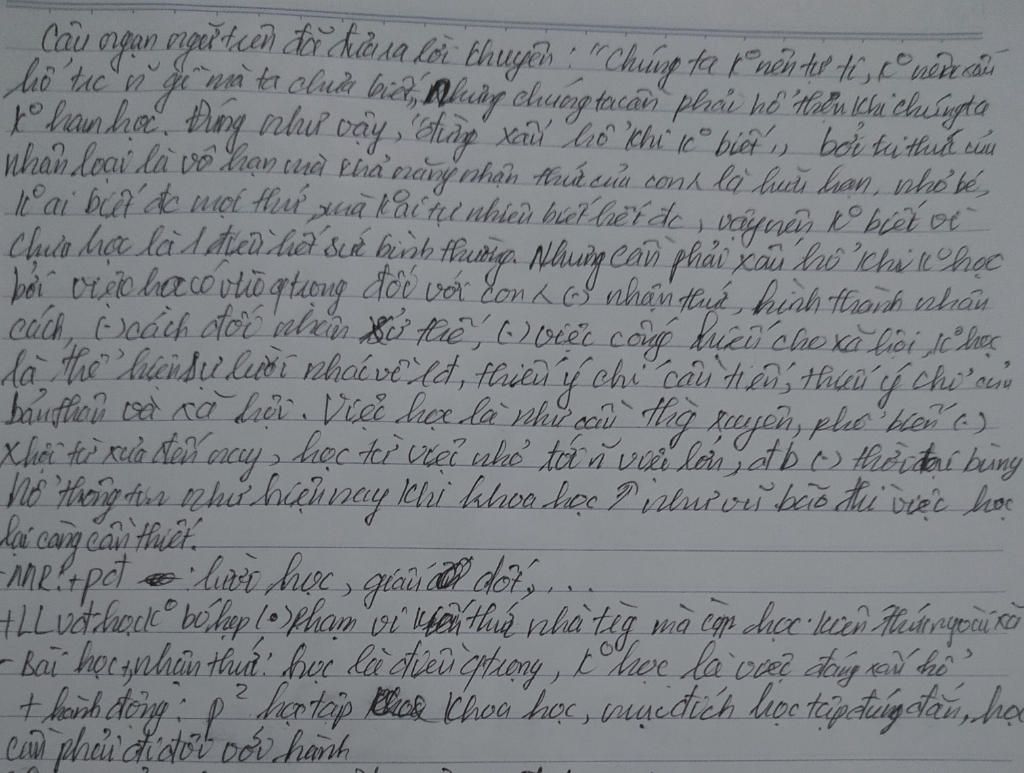 Câu ngạn ngữ trên đã đưa ra lời khuyên: "Chúng ta k° nên tự ti, k° nên xấu
hổ tr'c n~ gì mà ta chưa biết, nhưng chúng ta cần phải hổ thẹn khi chúng ta
k° ham học. Đúng như vậy, "đừng xấu hổ khi k° biết", bởi tri thức của
nhân loại là vô hạn mà khả năng nhận thức của con λ là hữu hạn, nhỏ bé,
k° ai biết đc mọi thứ, mà k° ai tự nhiên biết hết đc, vậy nên k° biết vì
chưa học là 1 điều hết sức bình thường. Nhưng cần phải xấu hổ khi k° học
bởi việc học có vtrò qtrọng đối với con λ (-) nhận thức, hình thành nhân
cách, (-) cách đối nhân xử thế, (-) việc cống hiến cho xã hội, k° học
là thể hiện sự lười nhác về lđ, thiếu ý chí cầu tiến, thiếu ý chí của
bản thân và xã hội. Việc học là nhu cầu thg xuyên, phổ biến (-)
xhội từ xưa đến nay, học từ việc nhỏ tới n~ việc lớn, đtb (-) thời đại bùng
nổ thông tin như hiện nay khi khoa học ↑ như vũ bão thì việc học
lại càng cần thiết.
- MR: + pđ : lười học, giấu dốt, ...
+ LL vđ học k° bó hẹp (.) phạm vi kiến thức nhà trg mà còn học kiến thức ngoài xã
- Bài học + nhận thức: học là điều qtrọng, k° học là việc đáng xấu hổ
+ hành động: p² học tập khoa học, mục đích học tập đúng đắn, học
cần phải đi đôi với hành